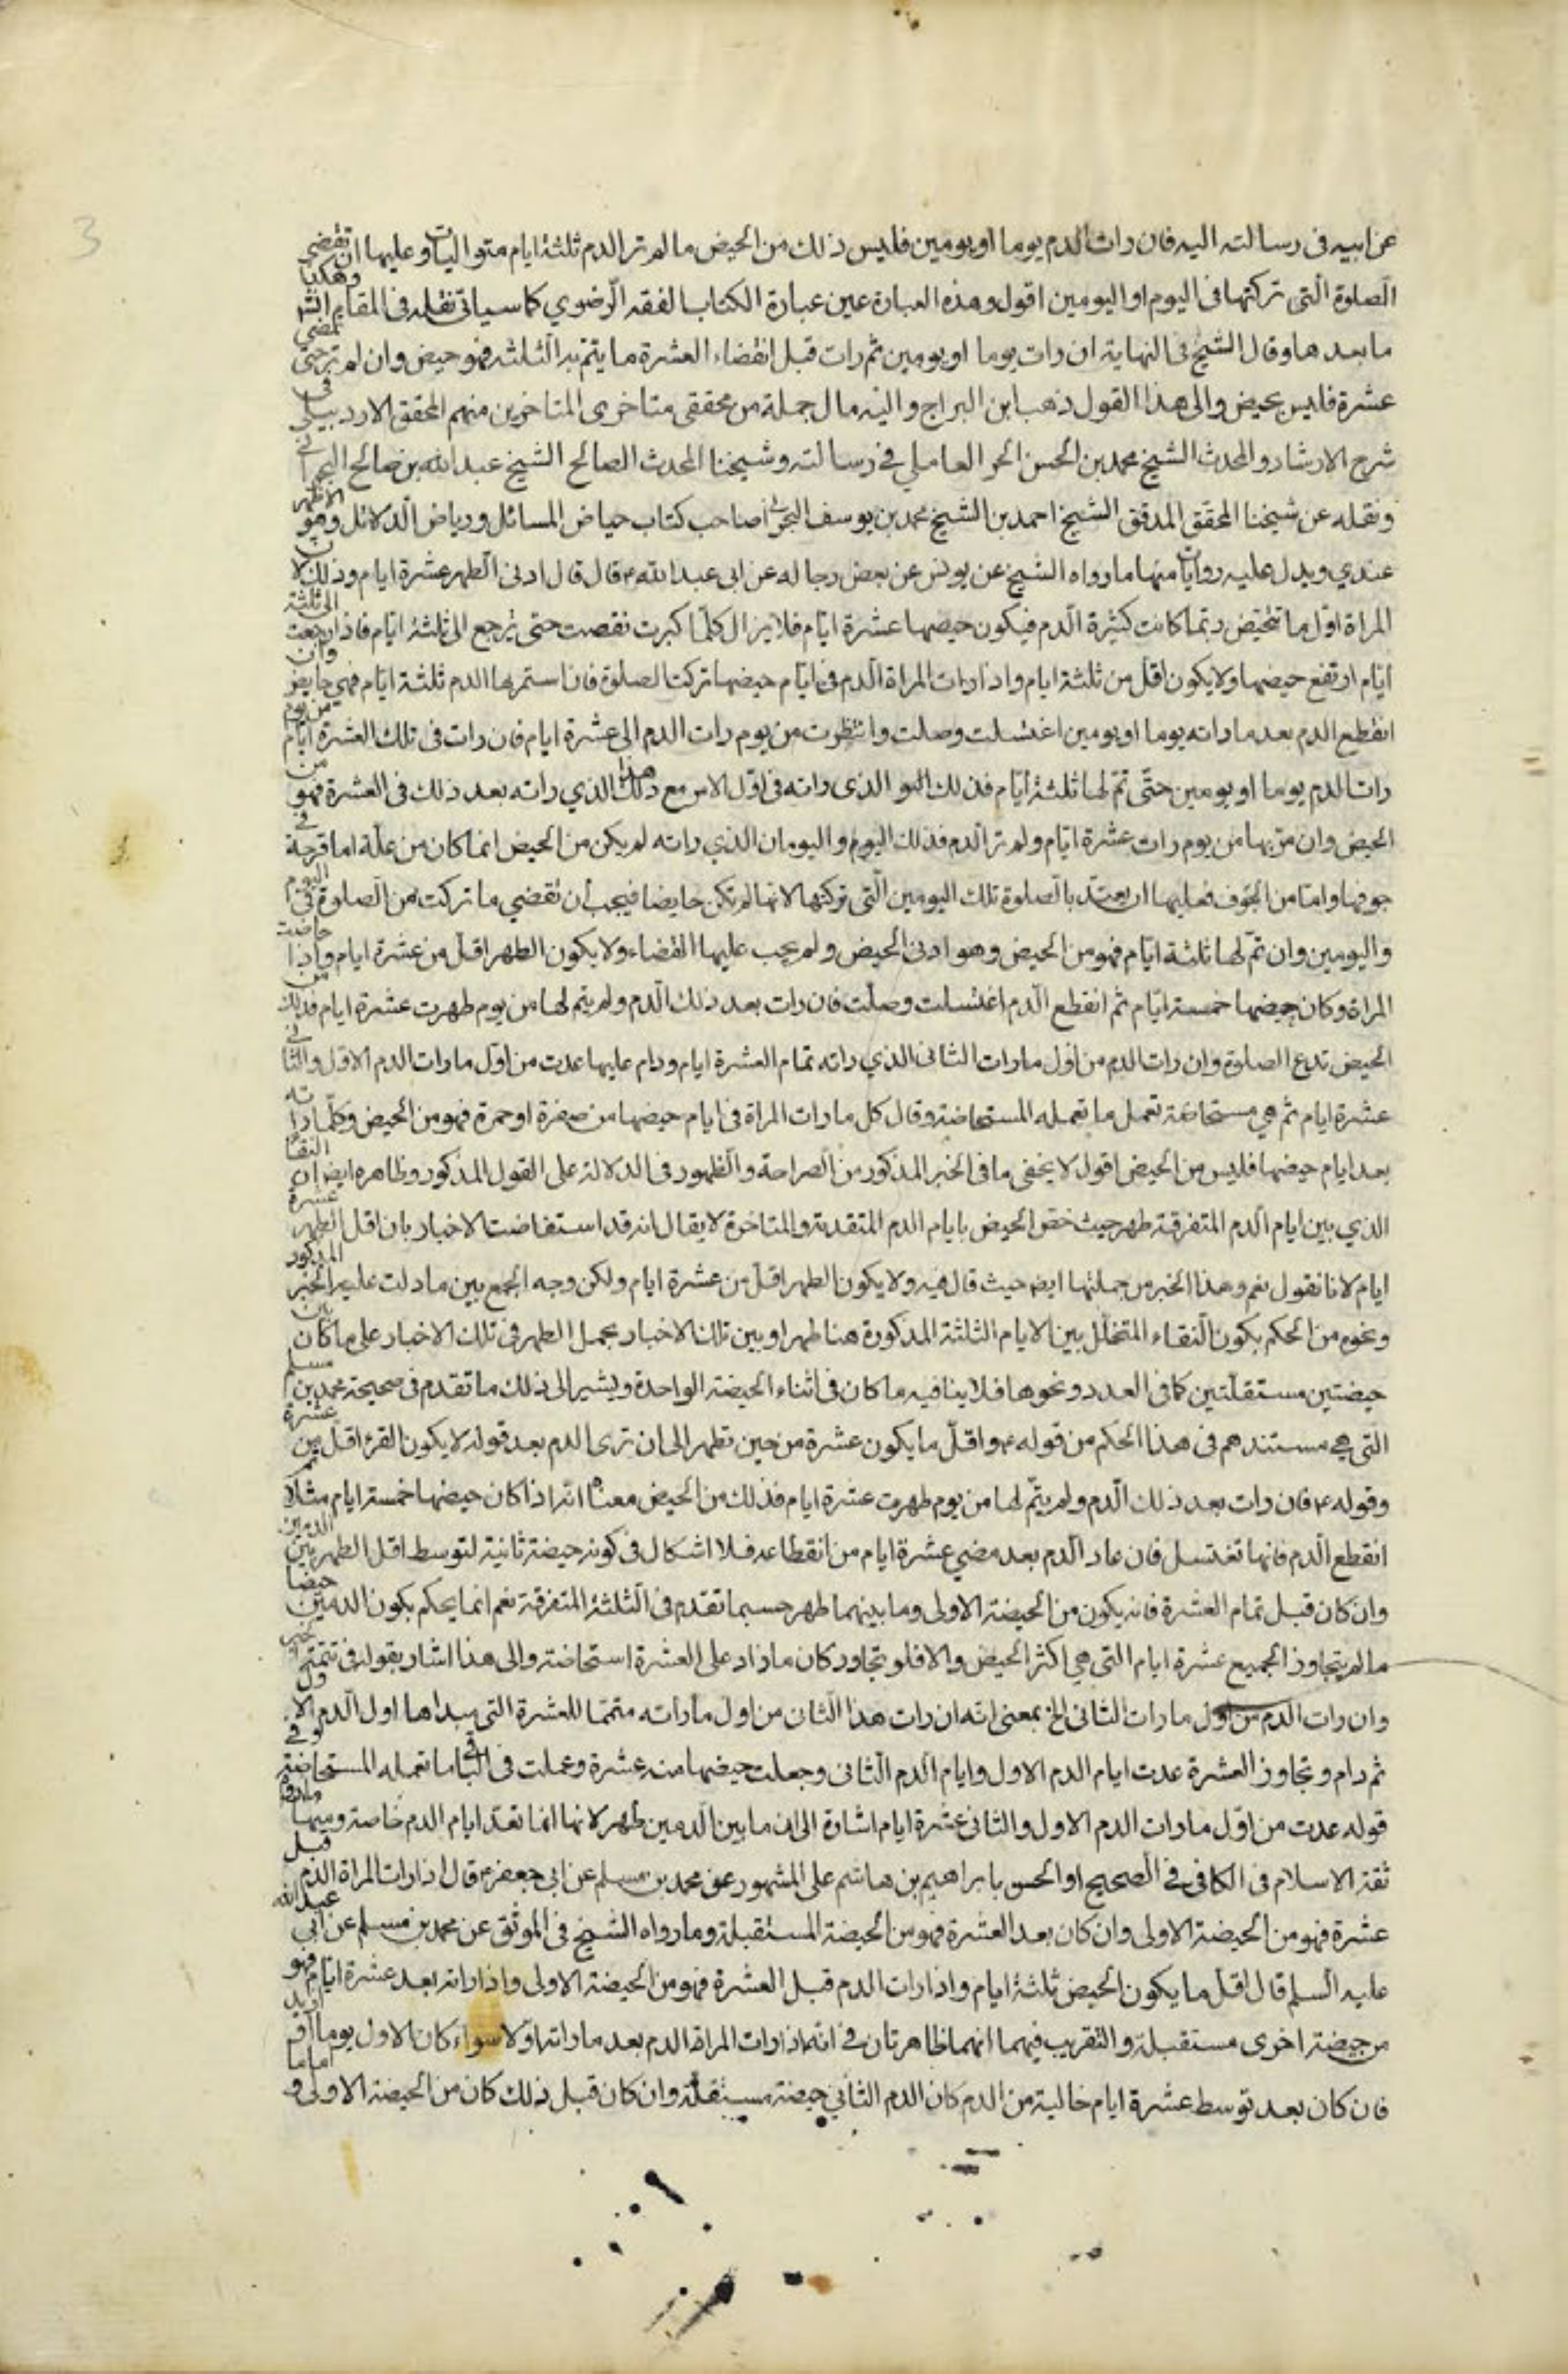 3
عن ابيه فى رسالته اليه فان رات الدم يوما او يومين فليس ذلك من الحيض ما لم تر الدم ثلثة ايام متواليات وعليها ان تقضى
الصلوة التى تركتها فى اليوم او اليومين اقول وهذه العبارة عين عبارة الكتاب الفقه الرضوي كما سياتى نقله فى المقام وهكذا
ما بعدها وقال الشيخ فى النهاية ان رات يوما او يومين ثم رات قبل انقضاء العشرة ما يتم به الثلثة فهو حيض وان لم تر حتى تمضى
عشرة فليس بحيض والى هذا القول ذهب ابن البراج واليه مال جملة من محققى متاخرى المتاخرين منهم المحقق الاردبيلى فى
شرح الارشاد والمحدث الشيخ محمد بن الحسن الحر العاملي في رسالته وشيخنا المحدث الصالح الشيخ عبد الله بن صالح البحرانى
ونقله عن شيخنا المحقق المدقق الشيخ احمد بن الشيخ محمد بن يوسف البحرانى صاحب كتاب حياض المسائل ورياض الدلائل وهو الاظهر
عندي ويدل عليه روايات منها ما رواه الشيخ عن يونس عن بعض رجاله عن ابى عبد الله ع قال قال ادنى الطهر عشرة ايام وذلك ان
المراة اول ما تحيض ربما كانت كثيرة الدم فيكون حيضها عشرة ايام فلا يزال كلما كبرت نقصت حتى يرجع الى ثلثة ايام فاذا رجعت الى ثلثة
ايام ارتفع حيضها ولا يكون اقل من ثلثة ايام واذا رات المراة الدم فى ايام حيضها تركت الصلوة فان استمر بها الدم ثلثة ايام فهى حايض وان
انقطع الدم بعد ما راته يوما او يومين اغتسلت وصلت وانتظرت من يوم رات الدم الى عشرة ايام فان رات فى تلك العشرة ايام من يوم
رات الدم يوما او يومين حتى تم لها ثلثة ايام فذلك الدم الذى راته فى اول الامر مع هذا الذي راته بعد ذلك فى العشرة فهو من
الحيض وان مر بها من يوم رات عشرة ايام ولم تر الدم فذلك اليوم واليومان الذي راته لم يكن من الحيض انما كان من علة اما قرحة في
جوفها واما من الجوف فعليها ان تعيد بالصلوة تلك اليومين التى تركتها لانها لم تكن حايضا فيجب ان تقضي ما تركت من الصلوة في اليوم
واليومين وان تم لها ثلثة ايام فهو من الحيض وهو ادنى الحيض ولم يجب عليها القضاء ولا يكون الطهر اقل من عشرة ايام واذا حاضت
المراة وكان حيضها خمسة ايام ثم انقطع الدم اغتسلت وصلت فان رات بعد ذلك الدم ولم يتم لها من يوم طهرت عشرة ايام فذلك من
الحيض تدع الصلوة وان رات الدم من اول ما رات الثانى الذي راته تمام العشرة ايام ودام عليها عدت من اول ما رات الدم الاول والثانى
عشرة ايام ثم هي مستحاضة تعمل ما تعمله المستحاضة وقال كل ما رات المراة فى ايام حيضها من صفرة او حمرة فهو من الحيض وكلما راته
بعد ايام حيضها فليس من الحيض اقول لا يخفى ما فى الخبر المذكور من الصراحة والظهور فى الدلالة على القول المذكور وظاهره ايض ان النقا
الذي بين ايام الدم المتفرقة طهر حيث خص الحيض بايام الدم المتقدمة والمتاخرة لا يقال انه قد استفاضت الاخبار بان اقل الطهر عشرة
ايام لانا نقول نعم وهذا الخبر من جملتها ايض حيث قال فيه ولا يكون الطهر اقل من عشرة ايام ولكن وجه الجمع بين ما دلت عليه الخبر المذكور
ونحوه من الحكم بكون النقاء المتخلل بين الايام الثلثة المذكورة هنا طهرا وبين تلك الاخبار بحمل الطهر فى تلك الاخبار على ما كان بين
حيضتين مستقلتين كما فى العدد ونحوها فلا ينافيه ما كان فى اثناء الحيضة الواحدة ويشير الى ذلك ما تقدم فى صحيحة محمد بن مسلم
التى هي مستندهم فى هذا الحكم من قوله ع واقل ما يكون عشرة من حين تطهر الى ان ترى الدم بعد قوله لا يكون القرء اقل من عشرة
وقوله ع فان رات بعد ذلك الدم ولم يتم لها من يوم طهرت عشرة ايام فذلك من الحيض معناه انه اذا كان حيضها خمسة ايام مثلا ثم
انقطع الدم فانها تغتسل فان عاد الدم بعد مضي عشرة ايام من انقطاعه فلا اشكال فى كونه حيضة ثانية لتوسط اقل الطهر بين الدمين
وان كان قبل تمام العشرة فانه يكون من الحيضة الاولى وما بينهما طهر حسبما تقدم فى الثلثة المتفرقة نعم انما يحكم بكون الدمين حيضا
ما لم يتجاوز الجميع عشرة ايام التى هي اكثر الحيض والا فلو تجاوز كان ما زاد على العشرة استحاضة والى هذا اشار بقوله فى تتمة الخبر
وان رات الدم من اول ما رات الثانى الخ بمعنى انه ان رات هذا الثانى من اول ما راته متمما للعشرة التى مبداها اول الدم الاول
ثم دام وتجاوز العشرة عدت ايام الدم الاول وايام الدم الثانى وجعلت حيضها منه عشرة وعملت فى الباقى ما تعمله المستحاضة وفي
قوله عدت من اول ما رات الدم الاول والثانى عشرة ايام اشارة الى ان ما بين الدمين طهر لانها انما تعد ايام الدم خاصة ومنها ما رواه
ثقة الاسلام فى الكافي في الصحيح او الحسن بابراهيم بن هاشم على المشهور عن محمد بن مسلم عن ابى جعفر ع قال اذا رات المراة الدم قبل
عشرة فهو من الحيضة الاولى وان كان بعد العشرة فهو من الحيضة المستقبلة وما رواه الشيخ فى الموثق عن محمد بن مسلم عن ابي عبد الله
عليه السلم قال اقل ما يكون الحيض ثلثة ايام واذا رات الدم قبل العشرة فهو من الحيضة الاولى واذا راته بعد عشرة ايام فهو
من حيضة اخرى مستقبلة والتقريب فيهما انهما ظاهرتان في انه اذا رات المراة الدم بعد ما راته اولا سواء كان الاول يوما او ازيد
فان كان بعد توسط عشرة ايام خالية من الدم كان الدم الثاني حيضة مستقلة وان كان قبل ذلك كان من الحيضة الاولى و اما ما